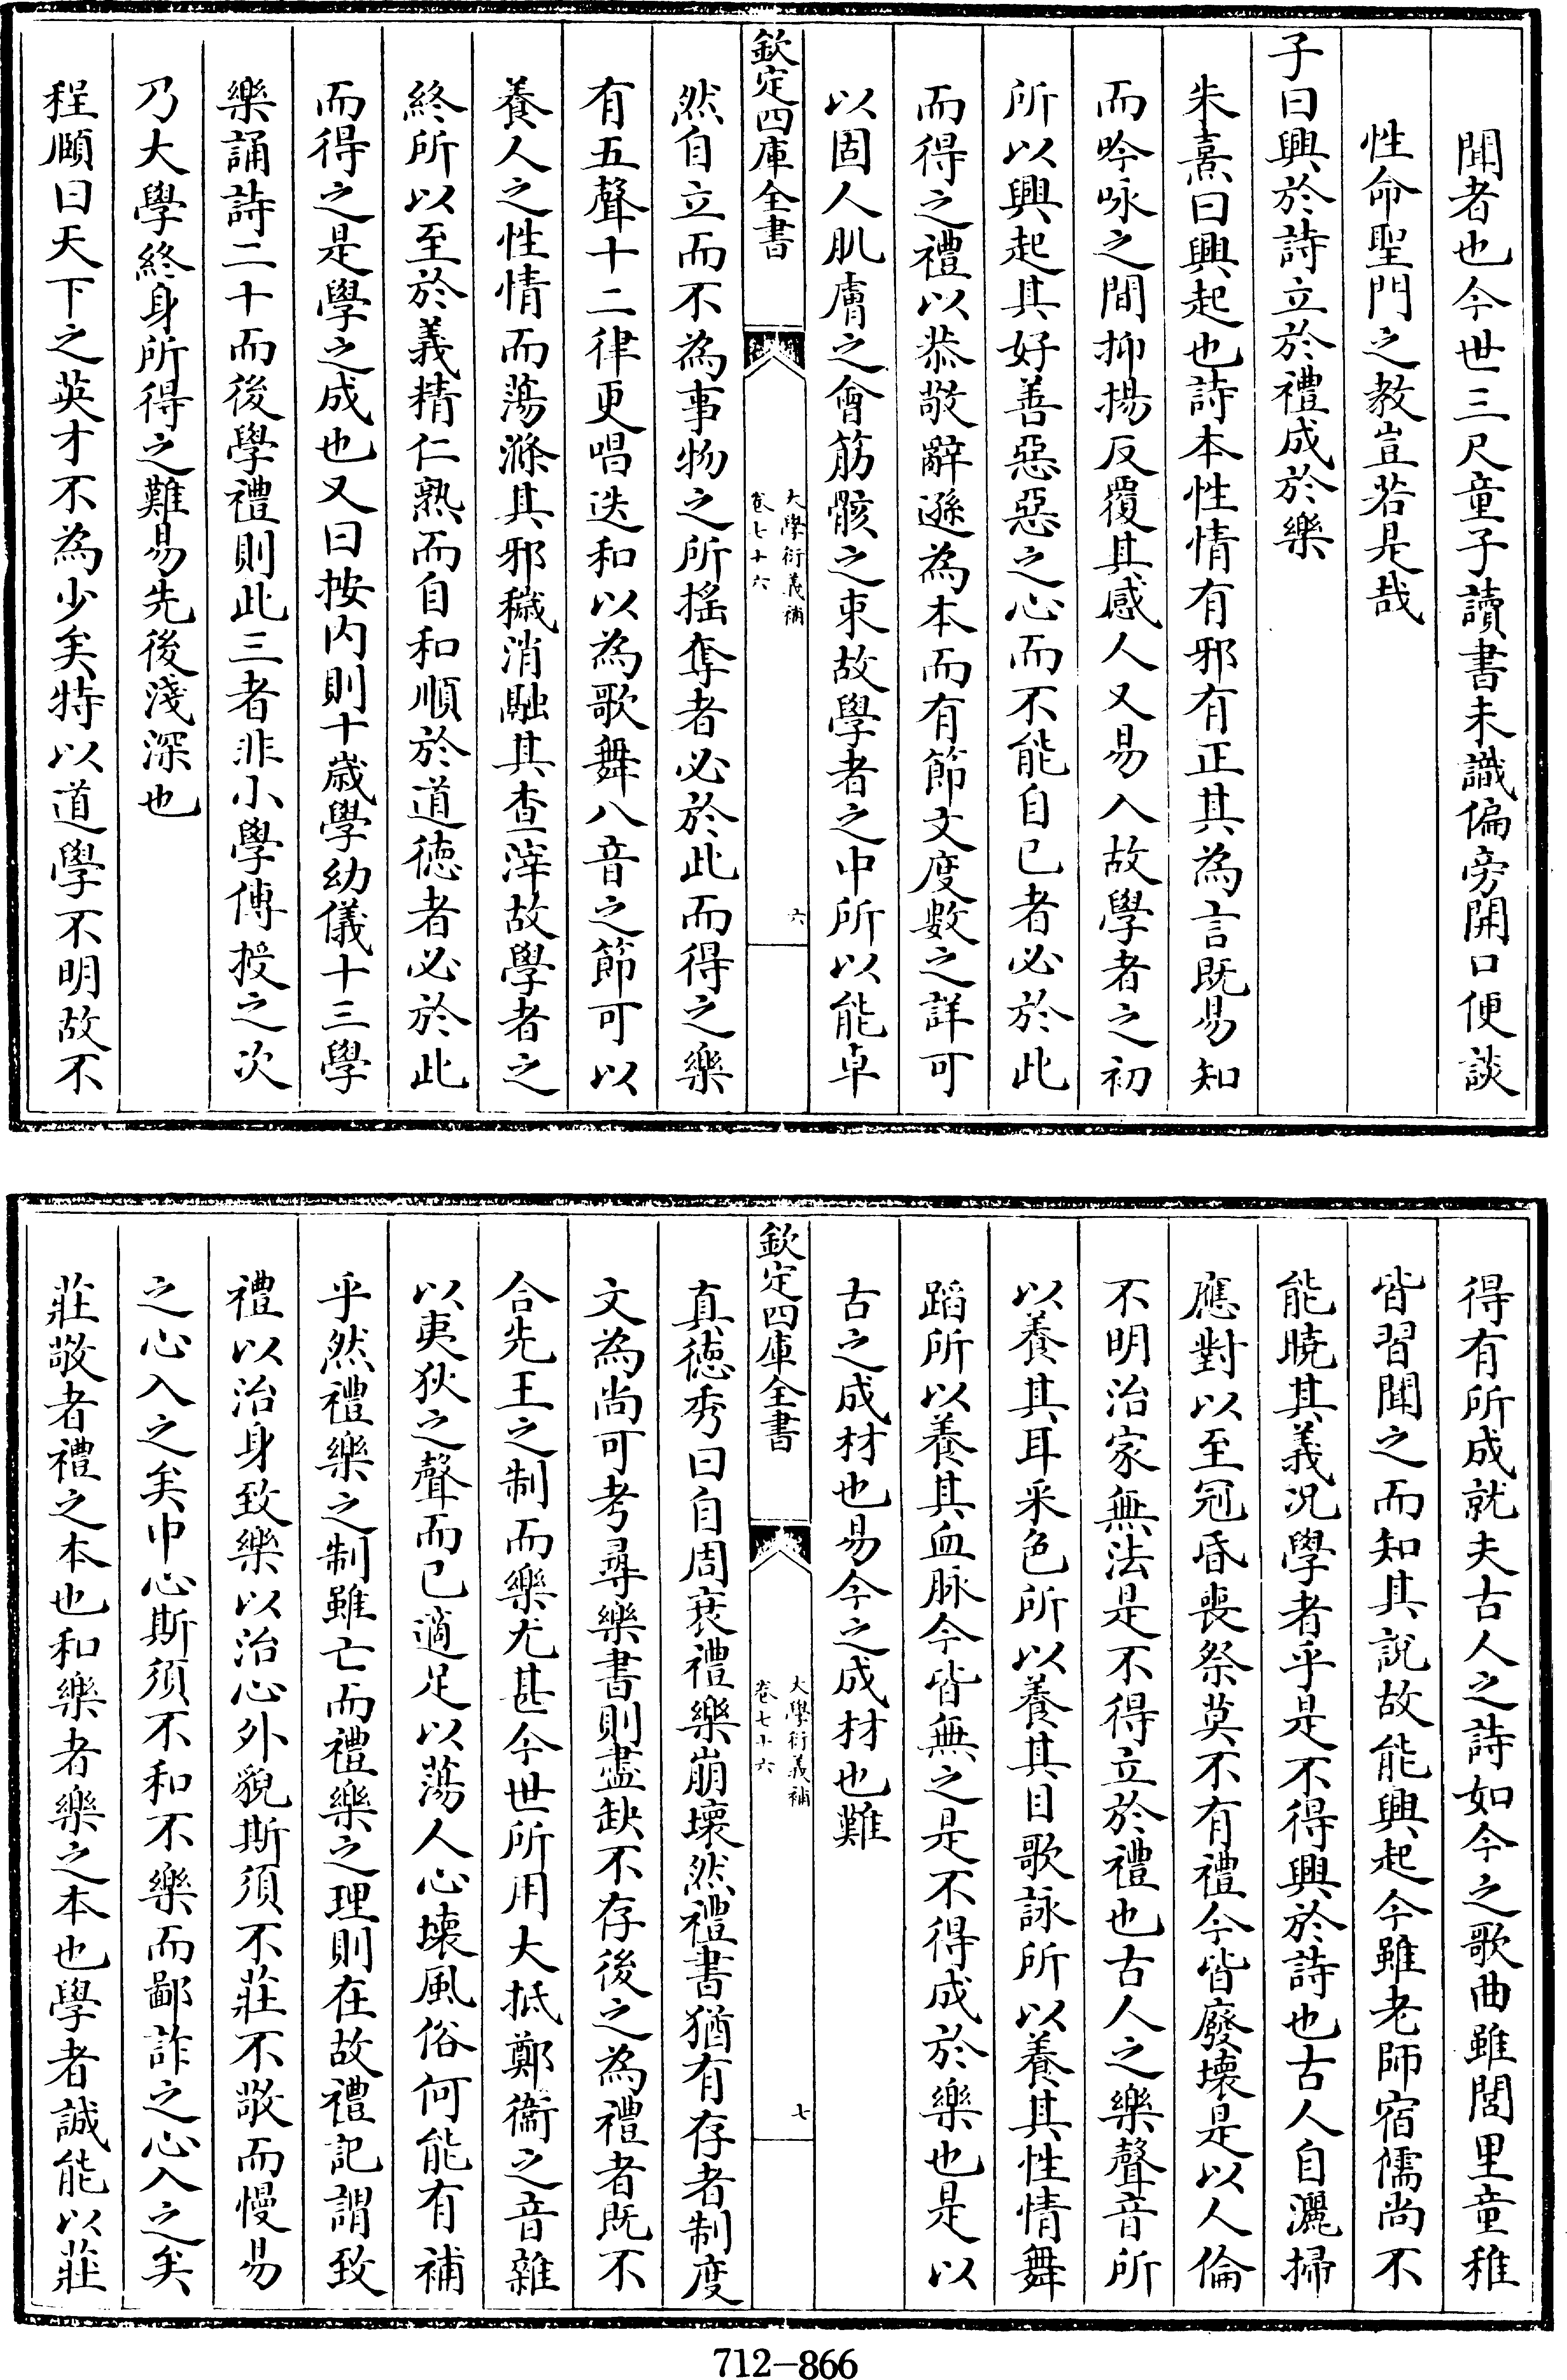 聞者也今世三尺童子讀書未識偏旁開口便談
性命聖門之教豈若是哉
子曰興於詩立於禮成於樂
朱熹曰興起也詩本性情有邪有正其為言既易知
而吟咏之間抑揚反覆其感人又易入故學者之初
所以興起其好善惡惡之心而不能自已者必於此
而得之禮以恭敬辭遜為本而有節文度數之詳可
以固人肌膚之會筋骸之束故學者之中所以能卓
欽定四庫全書
大學衍義補
卷七十六
六
然自立而不為事物之所搖奪者必於此而得之樂
有五聲十二律更唱迭和以為歌舞八音之節可以
養人之性情而蕩滌其邪穢消融其查滓故學者之
終所以至於義精仁熟而自和順於道徳者必於此
而得之是學之成也又曰按内則十歳學幼儀十三學
樂誦詩二十而後學禮則此三者非小學傳授之次
乃大學終身所得之難易先後淺深也
程頤曰天下之英才不為少矣特以道學不明故不
得有所成就夫古人之詩如今之歌曲雖閭里童稚
皆習聞之而知其説故能興起今雖老師宿儒尚不
能曉其義况學者乎是不得興於詩也古人自灑掃
應對以至冠昏喪祭莫不有禮今皆廢壞是以人倫
不明治家無法是不得立於禮也古人之樂聲音所
以養其耳采色所以養其目歌詠所以養其性情舞
蹈所以養其血脉今皆無之是不得成於樂也是以
古之成材也易今之成材也難
欽定四庫全書
大學衍義補
卷七十六
七
真徳秀曰自周衰禮樂崩壞然禮書猶有存者制度
文為尚可考尋樂書則盡缺不存後之為禮者既不
合先王之制而樂尤甚今世所用大抵鄭衞之音雜
以夷狄之聲而已適足以蕩人心壞風俗何能有補
乎然禮樂之制雖亡而禮樂之理則在故禮記謂致
禮以治身致樂以治心外貌斯須不莊不敬而慢易
之心入之矣中心斯須不和不樂而鄙詐之心入之矣
莊敬者禮之本也和樂者樂之本也學者誠能以莊
712-866